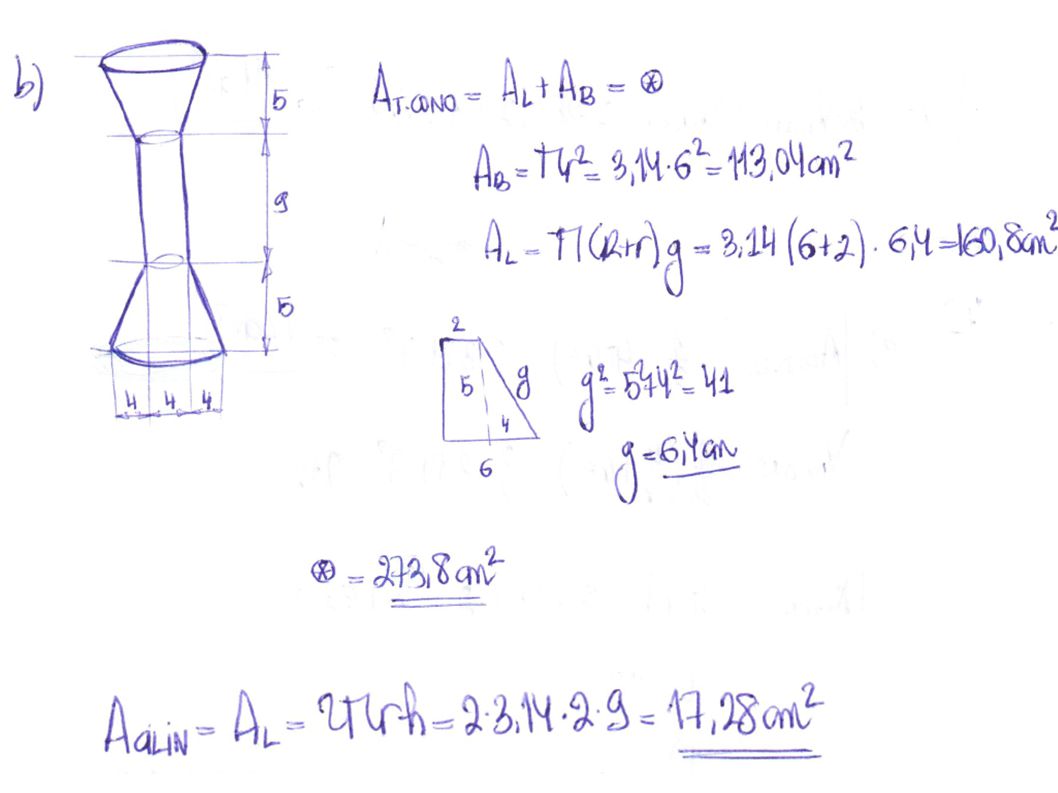 b)
5
9
5
4 4 4
A_T.CONO = A_L + A_B = ⊛
A_B = πr² = 3,14·6² = 113,04cm²
A_L = π(R+r)g = 3,14(6+2)·6,4 = 160,8cm²
2
5
g
4
6
g² = 5²+4² = 41
g = 6,4cm
⊛ = 273,8cm²
A_CILIN = A_L = 2πrh = 2·3,14·2·9 = 17,28cm²